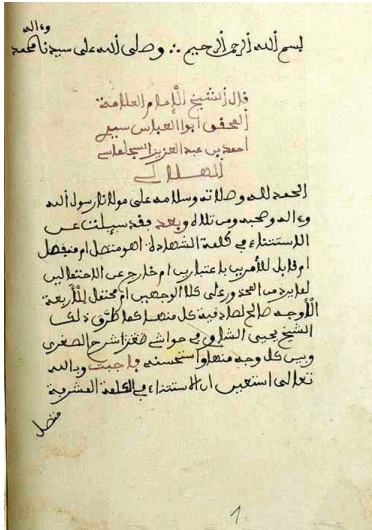 وءاله
بسم الله الرحمن الرحيم ∴ وصلى الله على سيدنا محمد
قال الشيخ الإمام العلامة
المحقق ابو العباس سيدي
احمد بن عبد العزيز السجلماسي
الهلالي
الحمد لله وصلاته وسلامه على مولانا رسول الله
وءاله وصحبه ومن تلاه وبعد فقد سيلت عن
الاستثناء في كلمة الشهادة اهو متصل ام منفصل
ام قابل للأمرين باعتبارين ام خارج عن الاحتمالين
لما يرد من المحذور على كلا الوجهين ام محتمل للأربعة
الأوجه صالح لصادقية كل منها كما طرق ذلك
الشيخ يحيى الشاوي في حواشي شرح الصغرى
وبين كل وجه منها واستحسنه فاجبت وبالله
تعالى استعين ان الاستثناء في الكلمة المشرفة
متصل
1